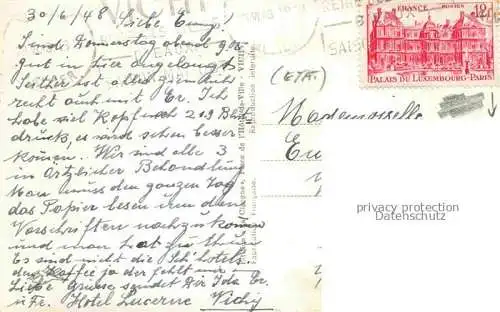 30/6/48 Liebe Emmy!
Sind Donnerstag abend 9 Uhr
gut in hier angelangt
Seither ist alles
recht auch mit Er. Ich
habe viel Kopfweh 219 Blut
druck, es wird schon besser
kommen. Wir sind alle 3
in Ärtzlicher Behandlung
Man muss den ganzen Tag
das Papier lesen um den
Vorschriften nachzukommen
und man hat zu thun
Es sind nicht die Sch'hotels
der Kaffee ja der fehlt mir
Liebe Grüsse sendet Dir Ida Er.
u Fr. Hotel Lucerne Vichy
Place de l'Hôtel-de-Ville - VICHY
Reproduction interdite
FRANCE POSTES 12F
PALAIS DU LUXEMBOURG-PARIS
(ETR.)
Mademoiselle
privacy protection
Datenschutz